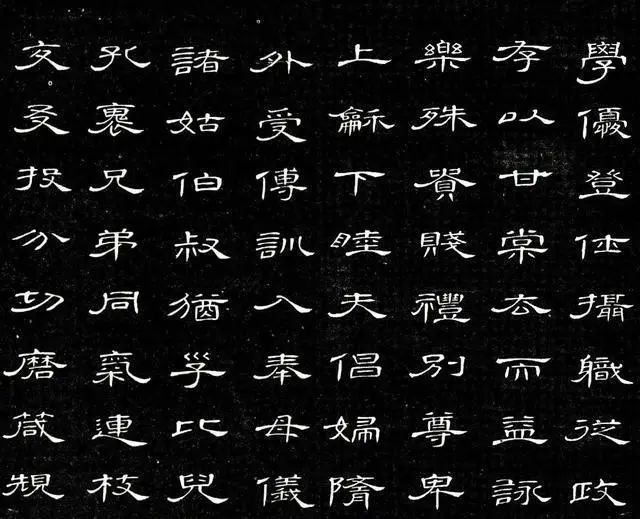 學優登仕攝職從政
存以甘棠去而益詠
樂殊貴賤禮別尊卑
上龢下睦夫倡婦隨
外受傅訓入奉母儀
諸姑伯叔猶子比兒
孔褱兄弟同氣連枝
交友投分切磨箴規